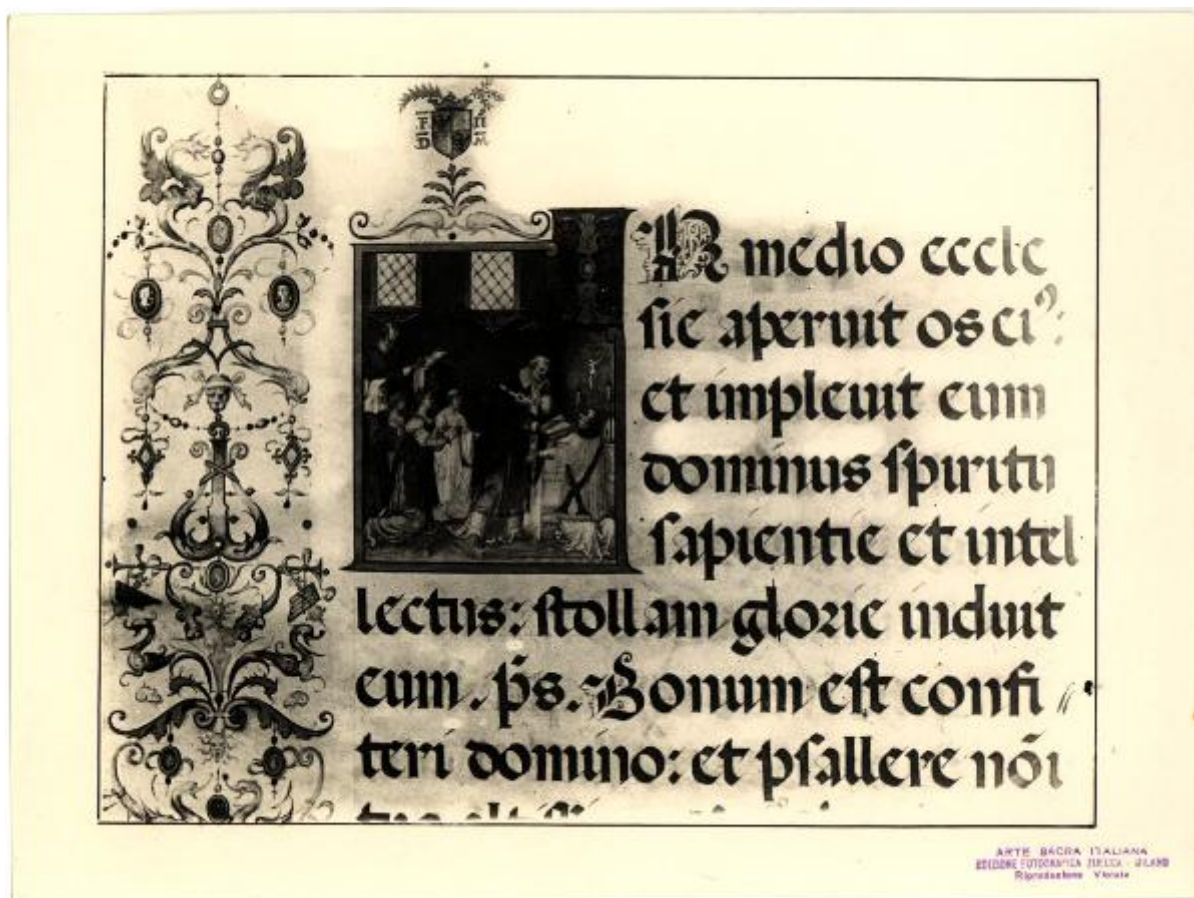 IN medio eccle
sie aperuit os eiꝰ:
et impleuit eum
dominus spiritu
sapientie et intel
lectus: stollam glorie induit
eum. p̄s. Bonum est confi //
teri domino: et psallere nōi
ARTE SACRA ITALIANA
EDIZIONE FOTOGRAFICA - MILANO
Riproduzione Vietata